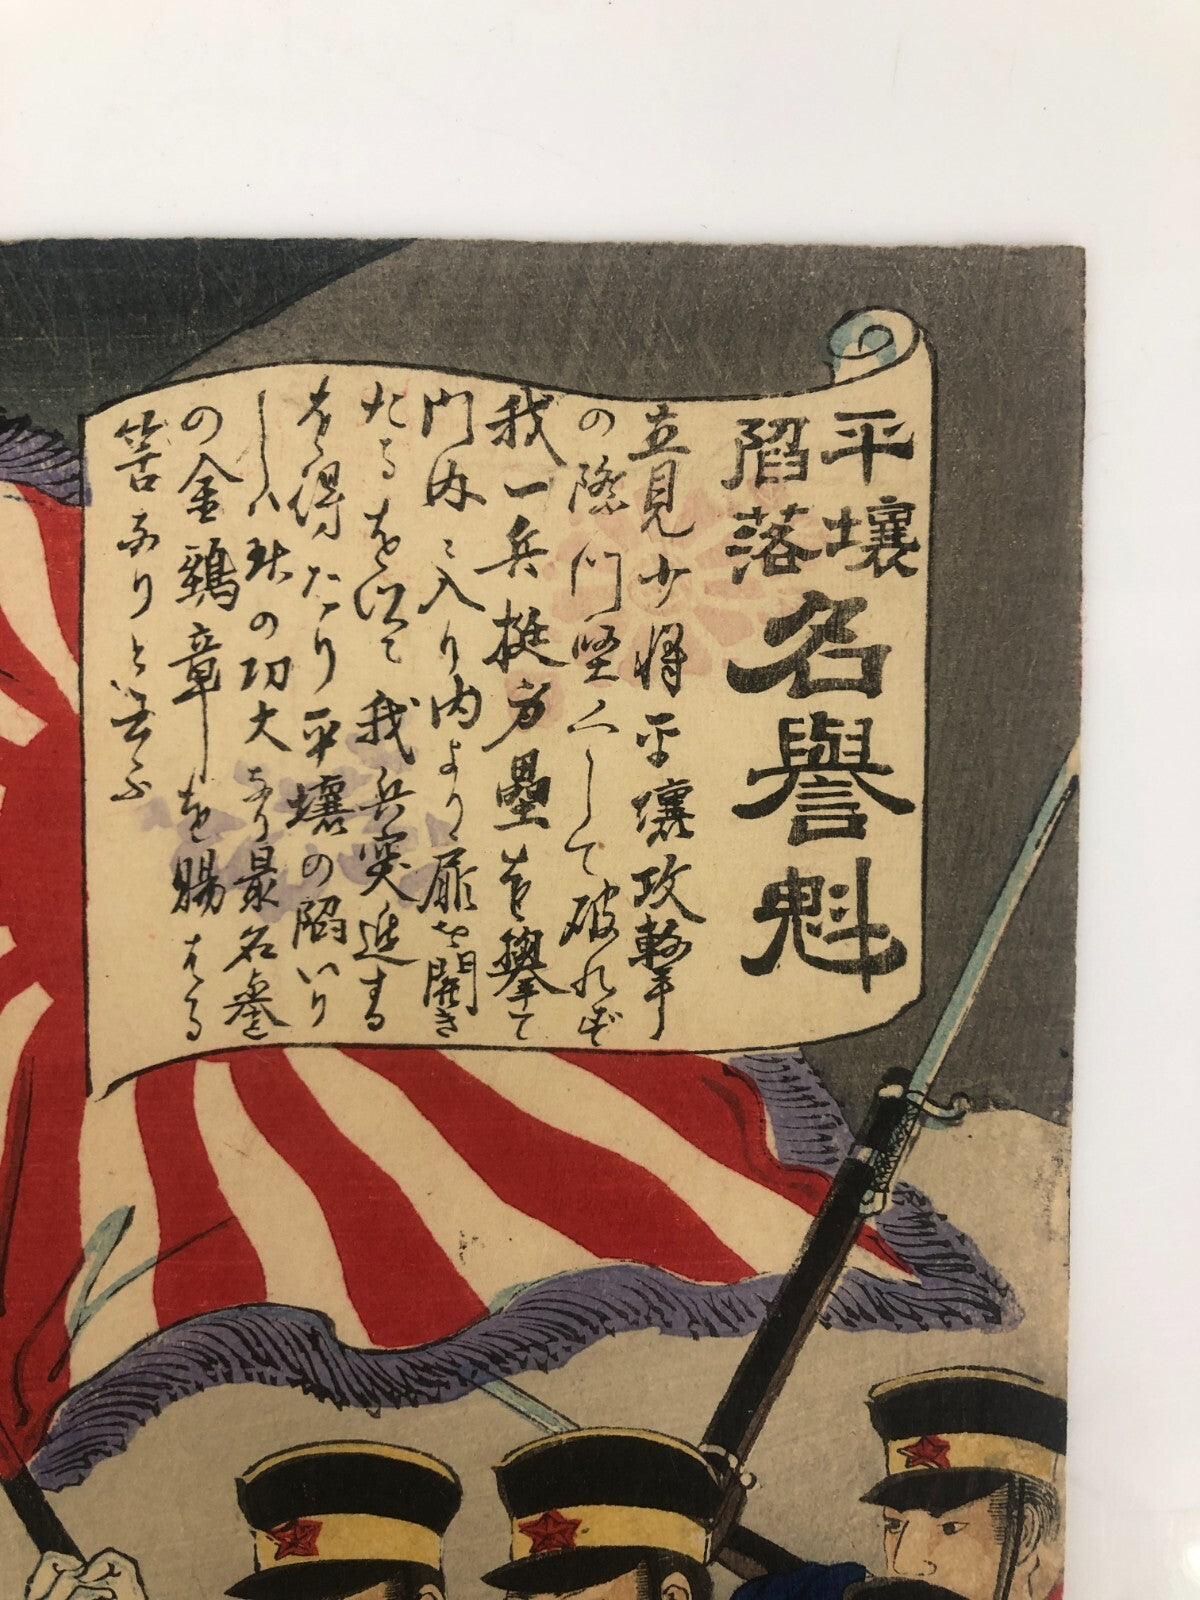 平壤
陷落
名譽魁
立見少将平壤攻擊
の際門堅くして破れず
我一兵挺身壘を攀て
門内ニ入り内より扉を開き
たるを以て我兵突進する
を得たり平壤の陷いり
しハ此の功大なり最名譽
の金鵄章を賜はる
筈なりと云ふ